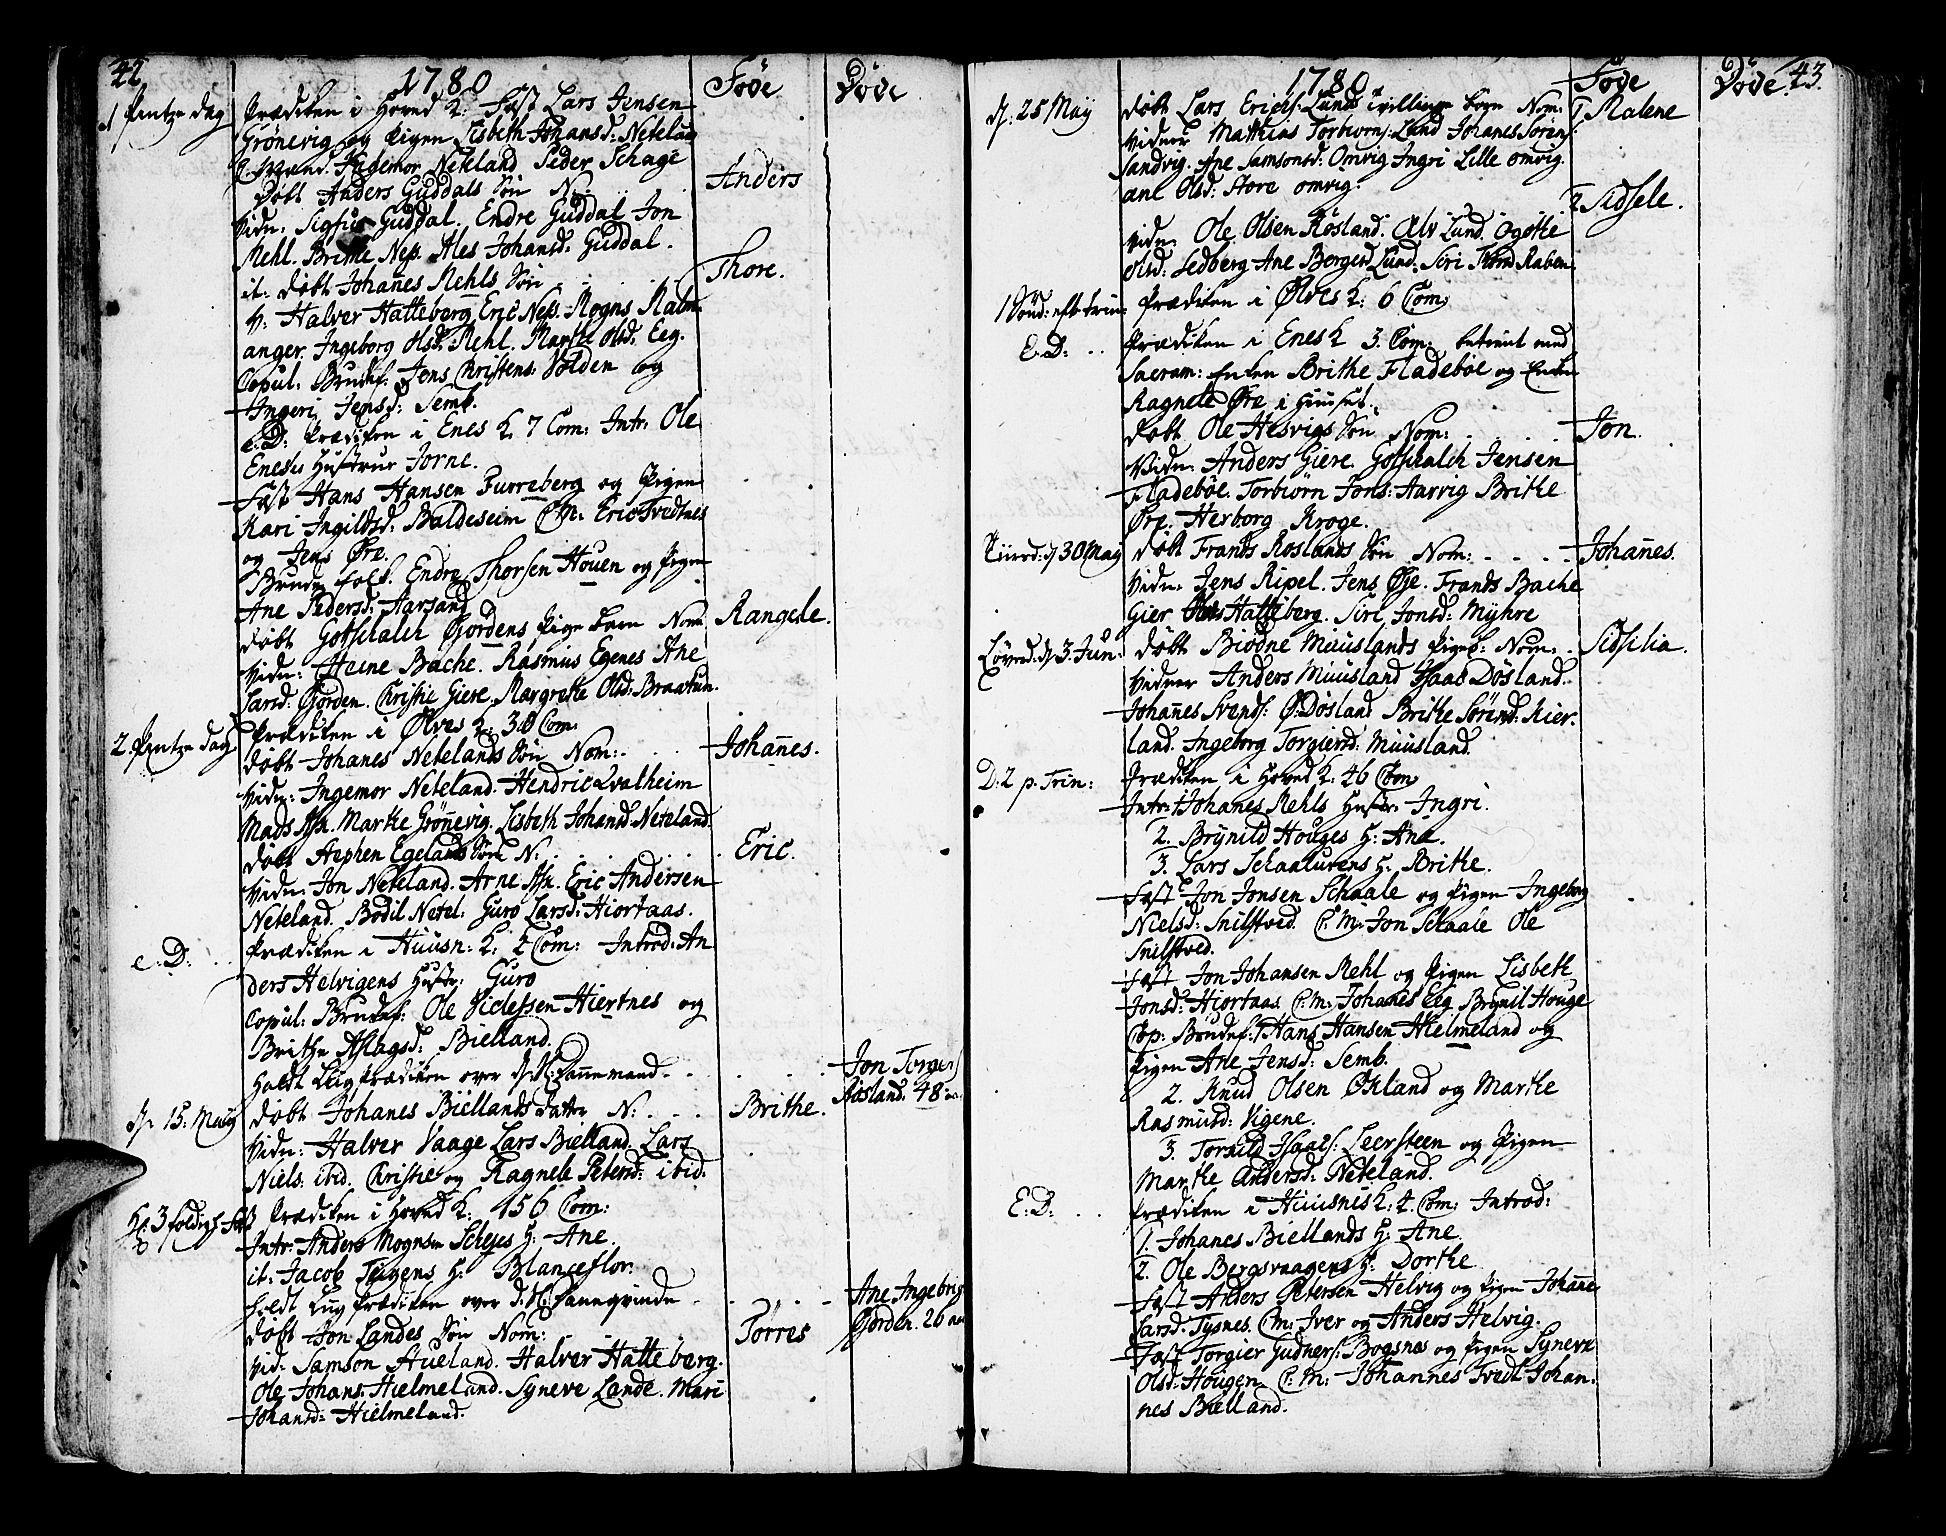 42
1780
Føde
Døde
1 Pintze dag
Prædiken i Hoved K: Fæst Lars Jensen
Grönevig og Pigen Lisbeth Johansd: Neteland
C. mænd. Ingemor Neteland Peder Schage
Døbt Anders Guddals Søn N.
Anders
Vidn: Sigfus Guddal. Endre Guddal Jon
Mehl. Brithe Nes. Ales Johansd: Guddal.
it: døbt Johañes Mehls Søn
Thore.
V: Halver Hatteberg Eric Nes. Mogns Malm
anger. Ingeborg Olsd: Mehl. Marthe Olsd: Eeg.
Copul: Brudef: Jens Christens: Volden og
Ingeri Jensd: Semb.
e.D: Prædiken i Enes K. 7 Com: Intr: Ole
Enesis Hustrue Jorne.
Fæst Hans Hansen Furreberg og Pigen
Kari Ingildsd: Baldesheim C.M: Eric Tvedtnes
og Jens Øre.
Brude folk. Endre Thorsen Houen og Pigen
Ane Pedersd: Aarsand
døbt Gotschalch Gjordens Pige barn Nom:
Rangele.
Vidn: Heine Bache. Rasmus Egenes Ane
Larsd: Gjorden. Christie Giere. Margrethe Olsd: Braatun.
2. Pintze dag
Prædiken i Ølves K. 30 Com:
døbt Johanes Netelands Søn Nom:
Johañes.
Vidn: Ingemor Neteland. Hendric Qvalheim
Mads Ibn. Marthe Grönevig. Lisbeth Johansd: Neteland.
døbt Stephen Egelands Søn N:
Eric.
Vidn: Jon Neteland. Arne Ibn. Eric Andersen
Neteland. Bodil Netel: Guro Larsd: Hiortaas.
e.D:
Prædiken i Huusn: K. 4 Com: Introd: An
ders Helvigens Hustr: Guro
Copul: Brudef: Ole Nielssen Hiertnes og
Brithe Aslagsd: Bielland.
Holdt Liig Prædiken over S: M: Dannemand
Jon Torgers:
Røsland. 48 aar
d. 15. May
Døbt Johanes Biellands Datter N:
Brithe.
Vidn: Halver Vaage Lars Bielland. Lars
Niels. ibid. Christie og Ragnele Petersd: ibid.
H: 3 foldigh: fæst
Prædiken i Hoved K: 156 Com:
Intr: Anders Mogns: Scheies H: Ane.
it: Jacob Teigens H: Blanceflor.
Holdt Liig Prædiken over d: M: Danneqvinde
Ane Ingebrigt:
Gjorden. 26 aar
døbt Jon Landes Søn Nom:
Torres
Vid: Samson Aueland. Halver Hatteberg.
Ole Johans: Hielmeland. Syneve Lande. Mari
Johansd: Hielmeland.
1780
Føde
Døde
43.
d: 25 May
døbt Lars Erichs: Lunds tvillinge börn Nom:
1 Malene
Vidner Mathias Torbiorns: Lund Johanes Sörens:
Sandvig. Ane Samsonsd: Omvig Ingri Lille omvig.
ane Olsd: Store omvig.
2 Sidsele.
Vidn: Ole Olsen Røsland. Alv Lund. Ogothe
Olsd: Sedberg Ane Bergesd Lund. Siri Trond Raben
1 Sönd: efter trin:
Prædiken i Ølves K: 6 Com:
E.D:
Prædiken i Enes K 3. Com: betient med
Sacram: Enken Brithe Fladebøe og Enken
Ragnele Øre i Huuset.
døbt Ole Hesvigs Søn Nom:
Jon.
Vidn: Anders Giere. Gotschalch Jensen
Fladebøe. Torbiörn Jons: Aarvig Brithe
Øre. Herborg Kroge.
Tiirsd: d: 30 May
Døbt Frands Roslands Søn Nom:
Johañes.
Vidn: Jens Ripel. Jens Øje. Frands Bache
Gier Hatteberg. Siri Jonsd: Myhre
Löverd: d: 3 Jun:
døbt Biodne Muuslands Pigeb: Nom:
Sidsilia.
Vidner Anders Muusland Isaac Døsland
Johañes Svends: Ø:Døsland Brithe Sørend: Kier
land. Ingeborg Torgiersd: Muusland.
D: 2 p. Trin:
Prædiken i Hoved K: 46 Com:
Intr: 1 Johanes Mehls Hustr: Ingri.
2. Brynild Houges H: Ane.
3. Lars Schaalurens H: Brithe.
Fæst Jon Jonsen Schaale og Pigen Ingeborg
Nielsd: Snilstved. C.M: Jon Schaale Ole
Snilstved.
Fæst Jon Johansen Mehl og Pigen Lisbeth
Jonsd: Hiortaas C.M: Johanes Eeg. Brynil Houge
Cop: Brudef: 1 Hans Hansen Hielmeland og
Pigen Ane Jensd: Semb.
2. Knud Olsen Økland og Marthe
Rasmusd: Vigene.
3. Torkild Isaacs: Leersteen og Pigen
Marthe Andersd: Neteland.
E.D:
Prædiken i Huusnes K: 4. Com: Introd:
1. Johanes Biellands H: Ane.
2. Ole Bergsvaagens H: Dorthe.
Fæst Anders Petersen Helvig og Pigen Johane
Larsd. Tysnes. C.M: Iver og Anders Helvig.
Fæst Torgier Gudners: Bogsnes og Pigen Syneve
Olsd: Hougen C.M: Johannes Tvedt Johan.
nes Bielland.